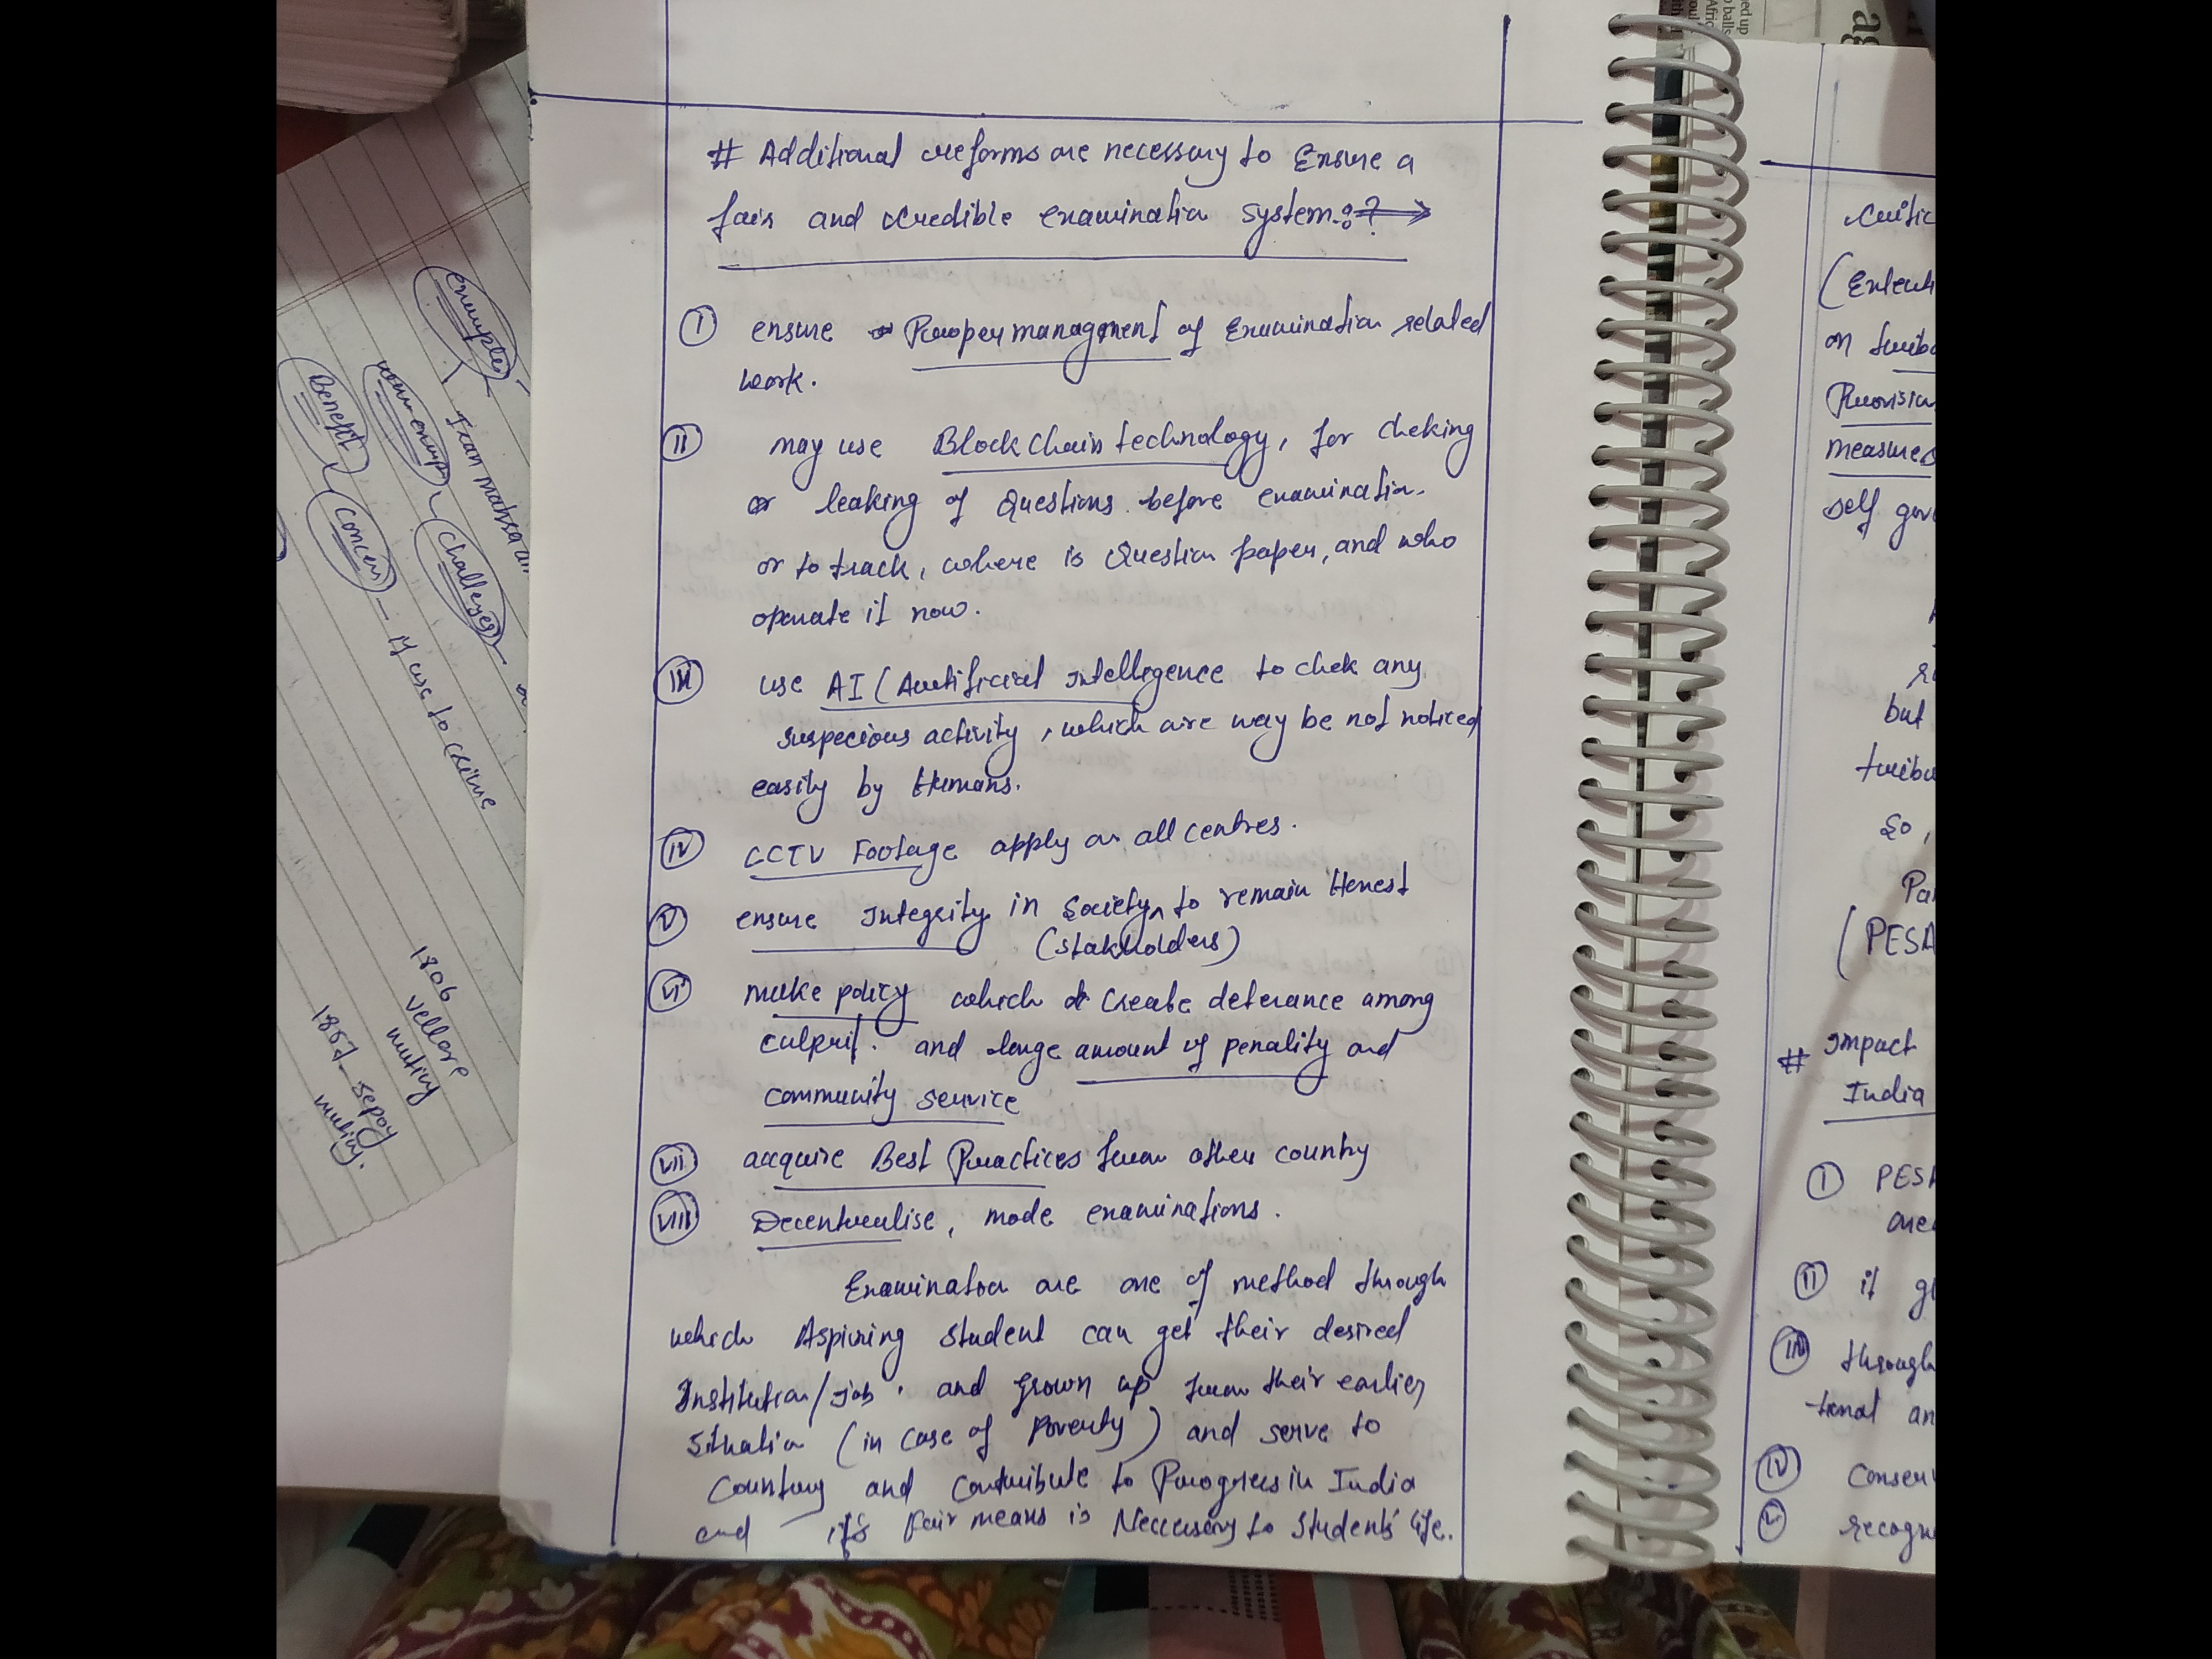 # Additional reforms are necessary to Ensure a
fair and credible examination system:?
I ensure Proper managment of Examination related
work.
II may use Block Chain technology, for cheking
or leaking of Questions before examination.
or to track, where is Question paper, and who
operate it now.
III use AI (Artificial intellegence to chek any
suspecious activity, which are may be not noticed
easily by Humans.
IV CCTV Footage apply on all centres.
V ensure Integrity in Society, to remain Honest
(stakholders)
VI make policy which create deterance among
culprit. and large amount of penality and
community service
VII acquire Best Practices from other country
VIII Decentralise, mode examinations.
Examination are one of method through
which Aspiring student can get their desired
Institution/Job. and grown up from their earlier
situation (in case of Poverty) and serve to
Country and contribute to Progress in India
and it's fair means is Neccessary to Students' life.
example
Benefit
Concern
Challeges
If use to crime
1806
vellore
mutiny
1857- sepoy
mutiny.
(Extent
on
Provision
measures
self gov
but
So,
(PESA
# Impact
India
I PESA
II it
III through
tional an
IV
V